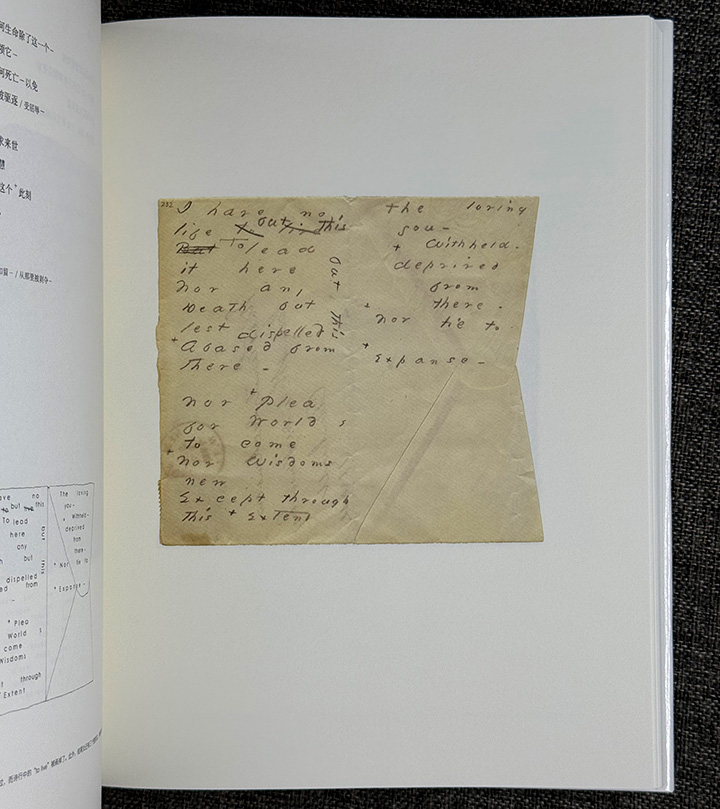 何生命除了这一个–
领它–
何死亡–以免
被驱逐/受屈辱–
求来世
慧
这个⁺此刻
/从那里被剥夺–
ove no
to but true this
To lead
here
any
h but
dispelled
ed from
–
but this
⁺ Plea
World s
come
Wisdoms
t through
Extent
The loving
you–
⁺ Withheld–
deprived
from
there–
⁺ Nor tie to
⁺ Expanse–
而诗行中的"to live"被删掉了。
232
I have no
life to live
but this
But To lead
it here
nor any
Death but
but this
lest dispelled
⁺ Abased from
there –
nor ⁺ Plea
for World s
to come
⁺ nor Wisdoms
new
Except through
this ⁺ Extent
the loving
you–
⁺ Withheld–
deprived
from
there–
⁺ nor tie to
⁺ Expanse–